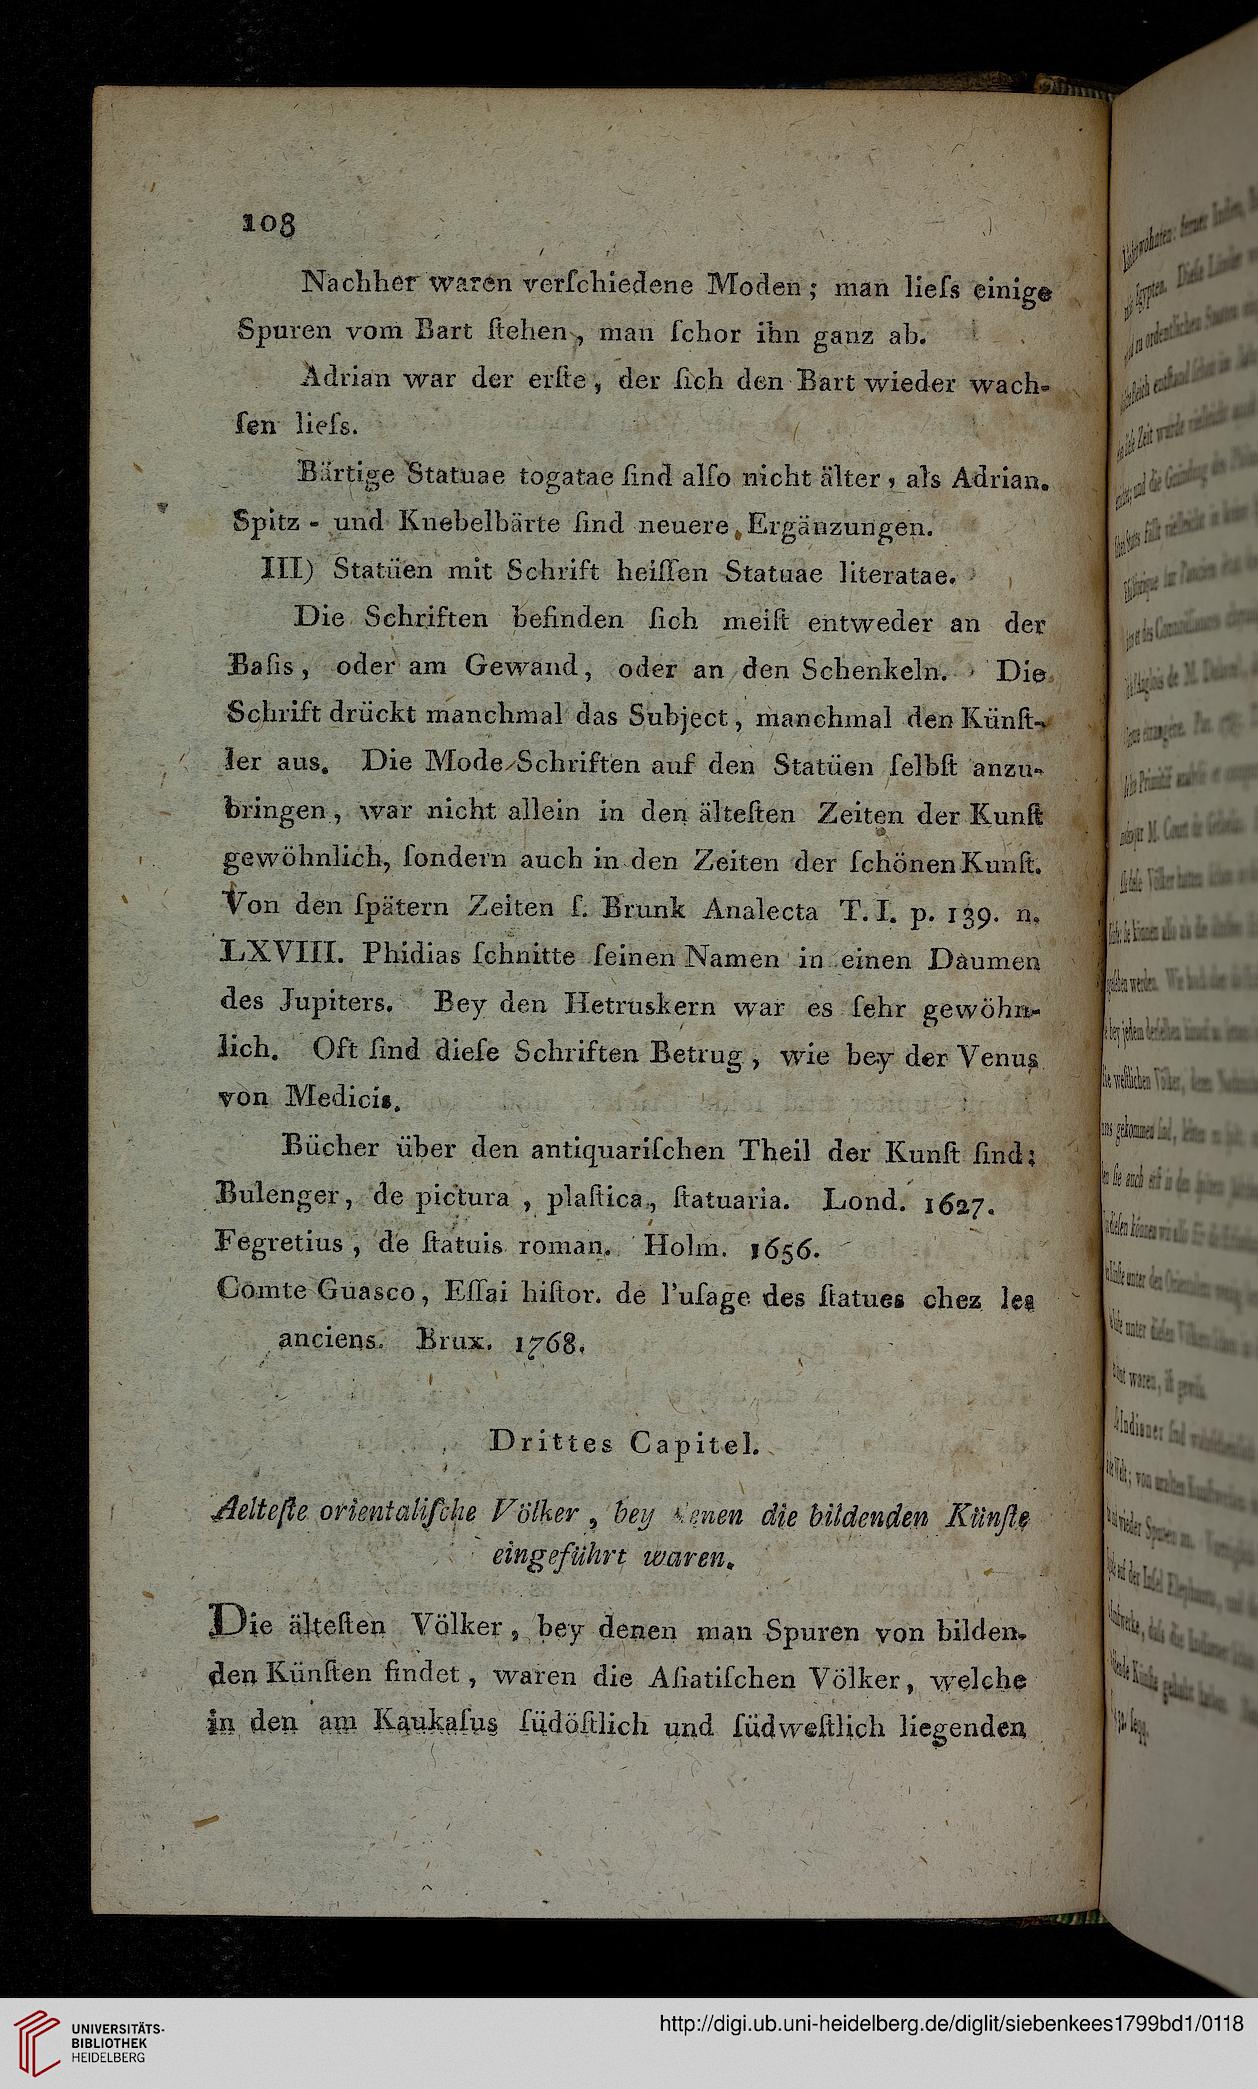 108
Nachher waren verſchiedene Moden; man lieſs einige
Spuren vom Bart ſtehen, man ſchor ihn ganz ab.
Adrian war der erſte, der ſich den Bart wieder wach-
ſen lieſs.
Bärtige Statuae togatae ſind alſo nicht älter, als Adrian.
Spitz- und Knebelbärte ſind neuere Ergänzungen.
III) Statüen mit Schrift heiſſen Statuae literatae.
Die Schriften befinden ſich meiſt entweder an der
Baſis, oder am Gewand, oder an den Schenkeln. Die
Schrift drückt manchmal das Subject, manchmal den Künſt-
ler aus. Die Mode Schriften auf den Statüen ſelbſt anzu-
bringen, war nicht allein in den älteſten Zeiten der Kunſt
gewöhnlich, ſondern auch in den Zeiten der ſchönen Kunſt.
Von den ſpätern Zeiten ſ. Brunk Analecta T. I. p. 139. n.
LXVIII. Phidias ſchnitte ſeinen Namen in einen Daumen
des Jupiters. Bey den Hetruskern war es ſehr gewöhn-
lich. Oft ſind dieſe Schriften Betrug, wie bey der Venus
von Medicis.
Bücher über den antiquariſchen Theil der Kunſt ſind:
Bulenger, de pictura, plaſtica, ſtatuaria. Lond. 1627.
Fegretius, de ſtatuis roman. Holm. 1656.
Comte Guasco, Eſſai hiſtor. de l'uſage des ſtatues chez les
anciens. Brux. 1768.
Drittes Capitel.
Aelteſte orientaliſche Völker, bey denen die bildenden Künſte
eingeführt waren.
Die älteſten Völker, bey denen man Spuren von bilden-
den Künſten findet, waren die Aſiatiſchen Völker, welche
in den am Kaukaſus ſüdöſtlich und ſüdweſtlich liegenden
UNIVERSITÄTS-
BIBLIOTHEK
HEIDELBERG
http://digi.ub.uni-heidelberg.de/diglit/siebenkees1799bd1/0118